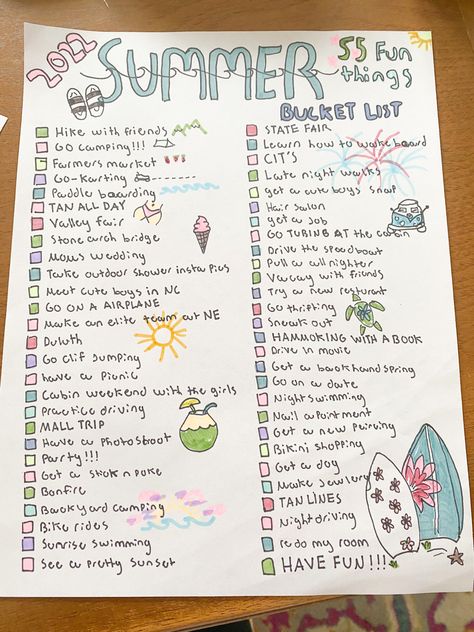 2022
SUMMER
55 Fun things
BUCKET LIST
HIKE with friends
GO camping!!!
Farmers market
Go-Karting
Paddle boarding
TAN ALL DAY
Valley fair
Stone arch bridge
Moms wedding
Take outdoor shower insta pics
Meet cute boys in NC
GO ON A AIRPLANE
Make an elite team at NE
Duluth
Go Clif Jumping
have a picnic
Cabin weekend with the girls
Practice driving
MALL TRIP
Have a Photoshoot
Party!!!
Get a stick n poke
Bonfire
Backyard camping
Bike rides
Sunrise swimming
See a pretty sunset
STATE FAIR
Learn how to wakeboard
CIT'S
Late night walks
get a cute boys snap
Hair salon
get a job
GO TUBING AT the cabin
Drive the speedboat
Pull a all nighter
Vacay with friends
Try a new resturant
Go thrifting
Sneak out
HAMMOKING WITH A BOOK
Drive in movie
Get a backhandspring
Go on a date
Night swimming
Nail apointment
Get a new peircing
Bikini shopping
Get a dog
Make jewlery
TAN LINES
Night driving
redo my room
HAVE FUN!!!